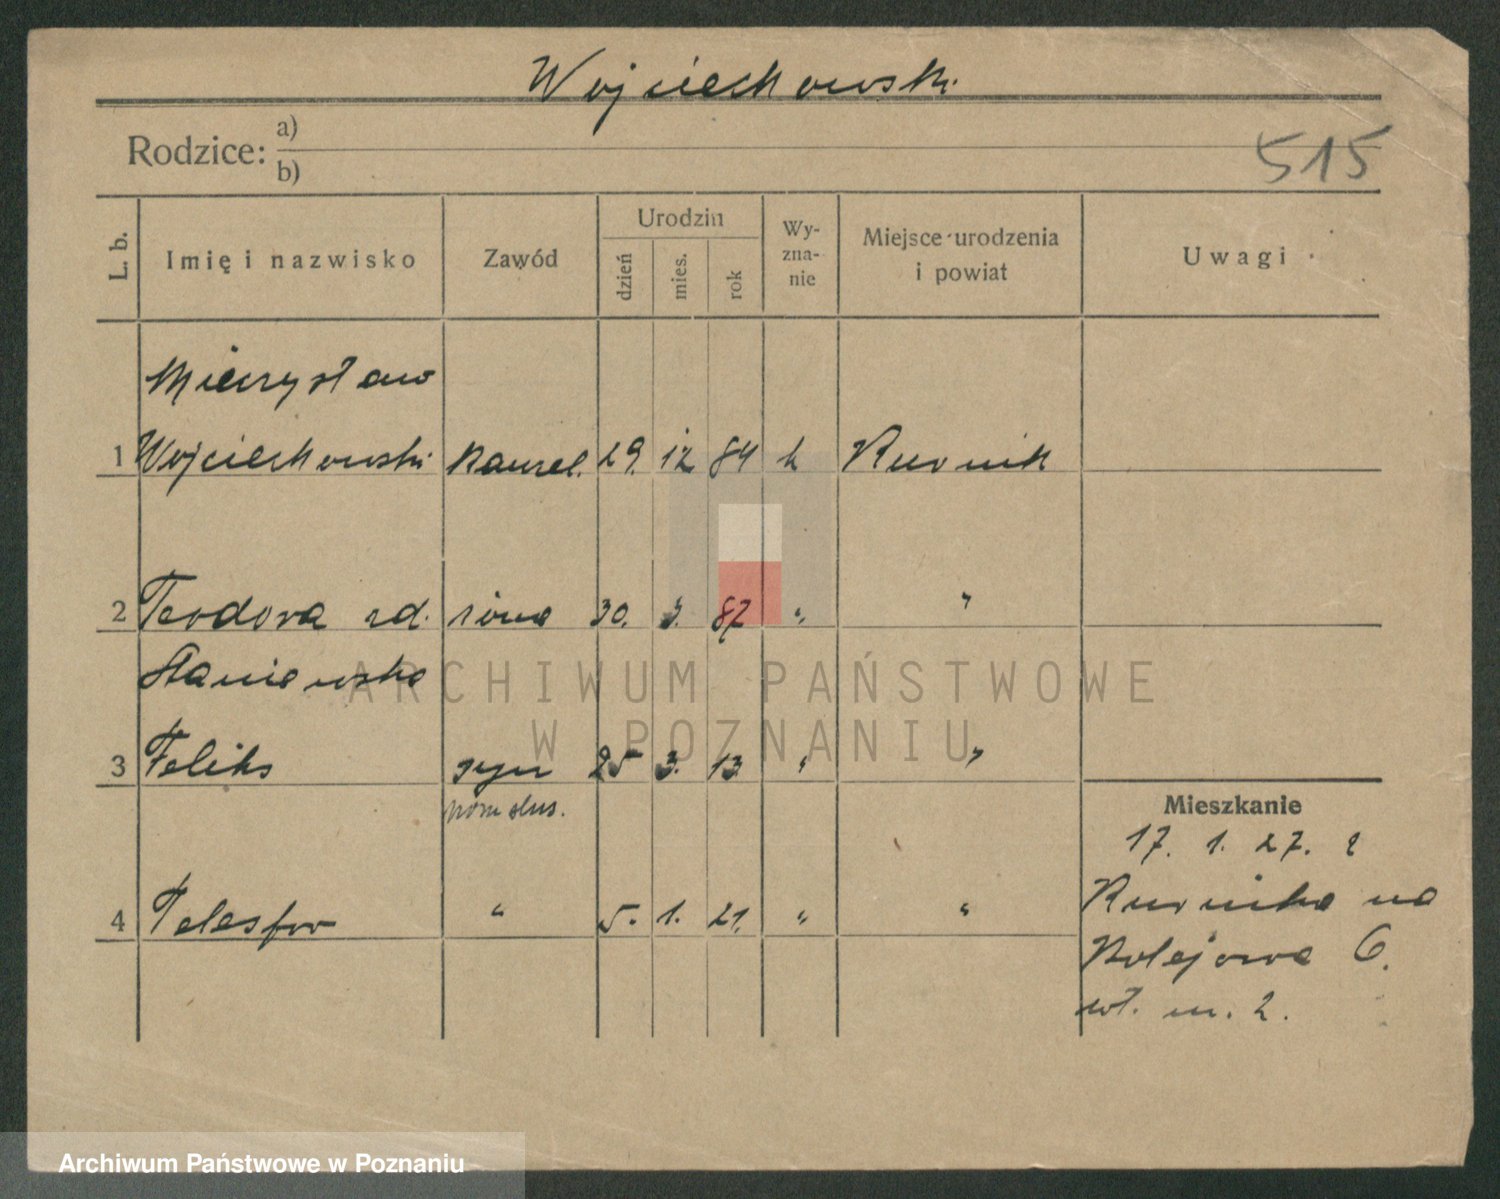 Wojciechowski
Rodzice: a)
b)
515
L. b. Imię i nazwisko Zawód Urodzin dzień mies. rok Wy-zna-nie Miejsce urodzenia i powiat Uwagi
Mieczysław
1 Wojciechowski kancel. 29. 12 84 k Kurnik
2 Teodora zd. żona 30. 3. 87 " "
Staniewska
3 Feliks syn 25 3. 13 " "
pom ślus.
Mieszkanie
17. 1. 27. z
4 Telesfor " 5. 1. 21. " "
Kurnika na
Kolejowa 6.
wł. m. 2.
ARCHIWUM PAŃSTWOWE
W POZNANIU
Archiwum Państwowe w Poznaniu